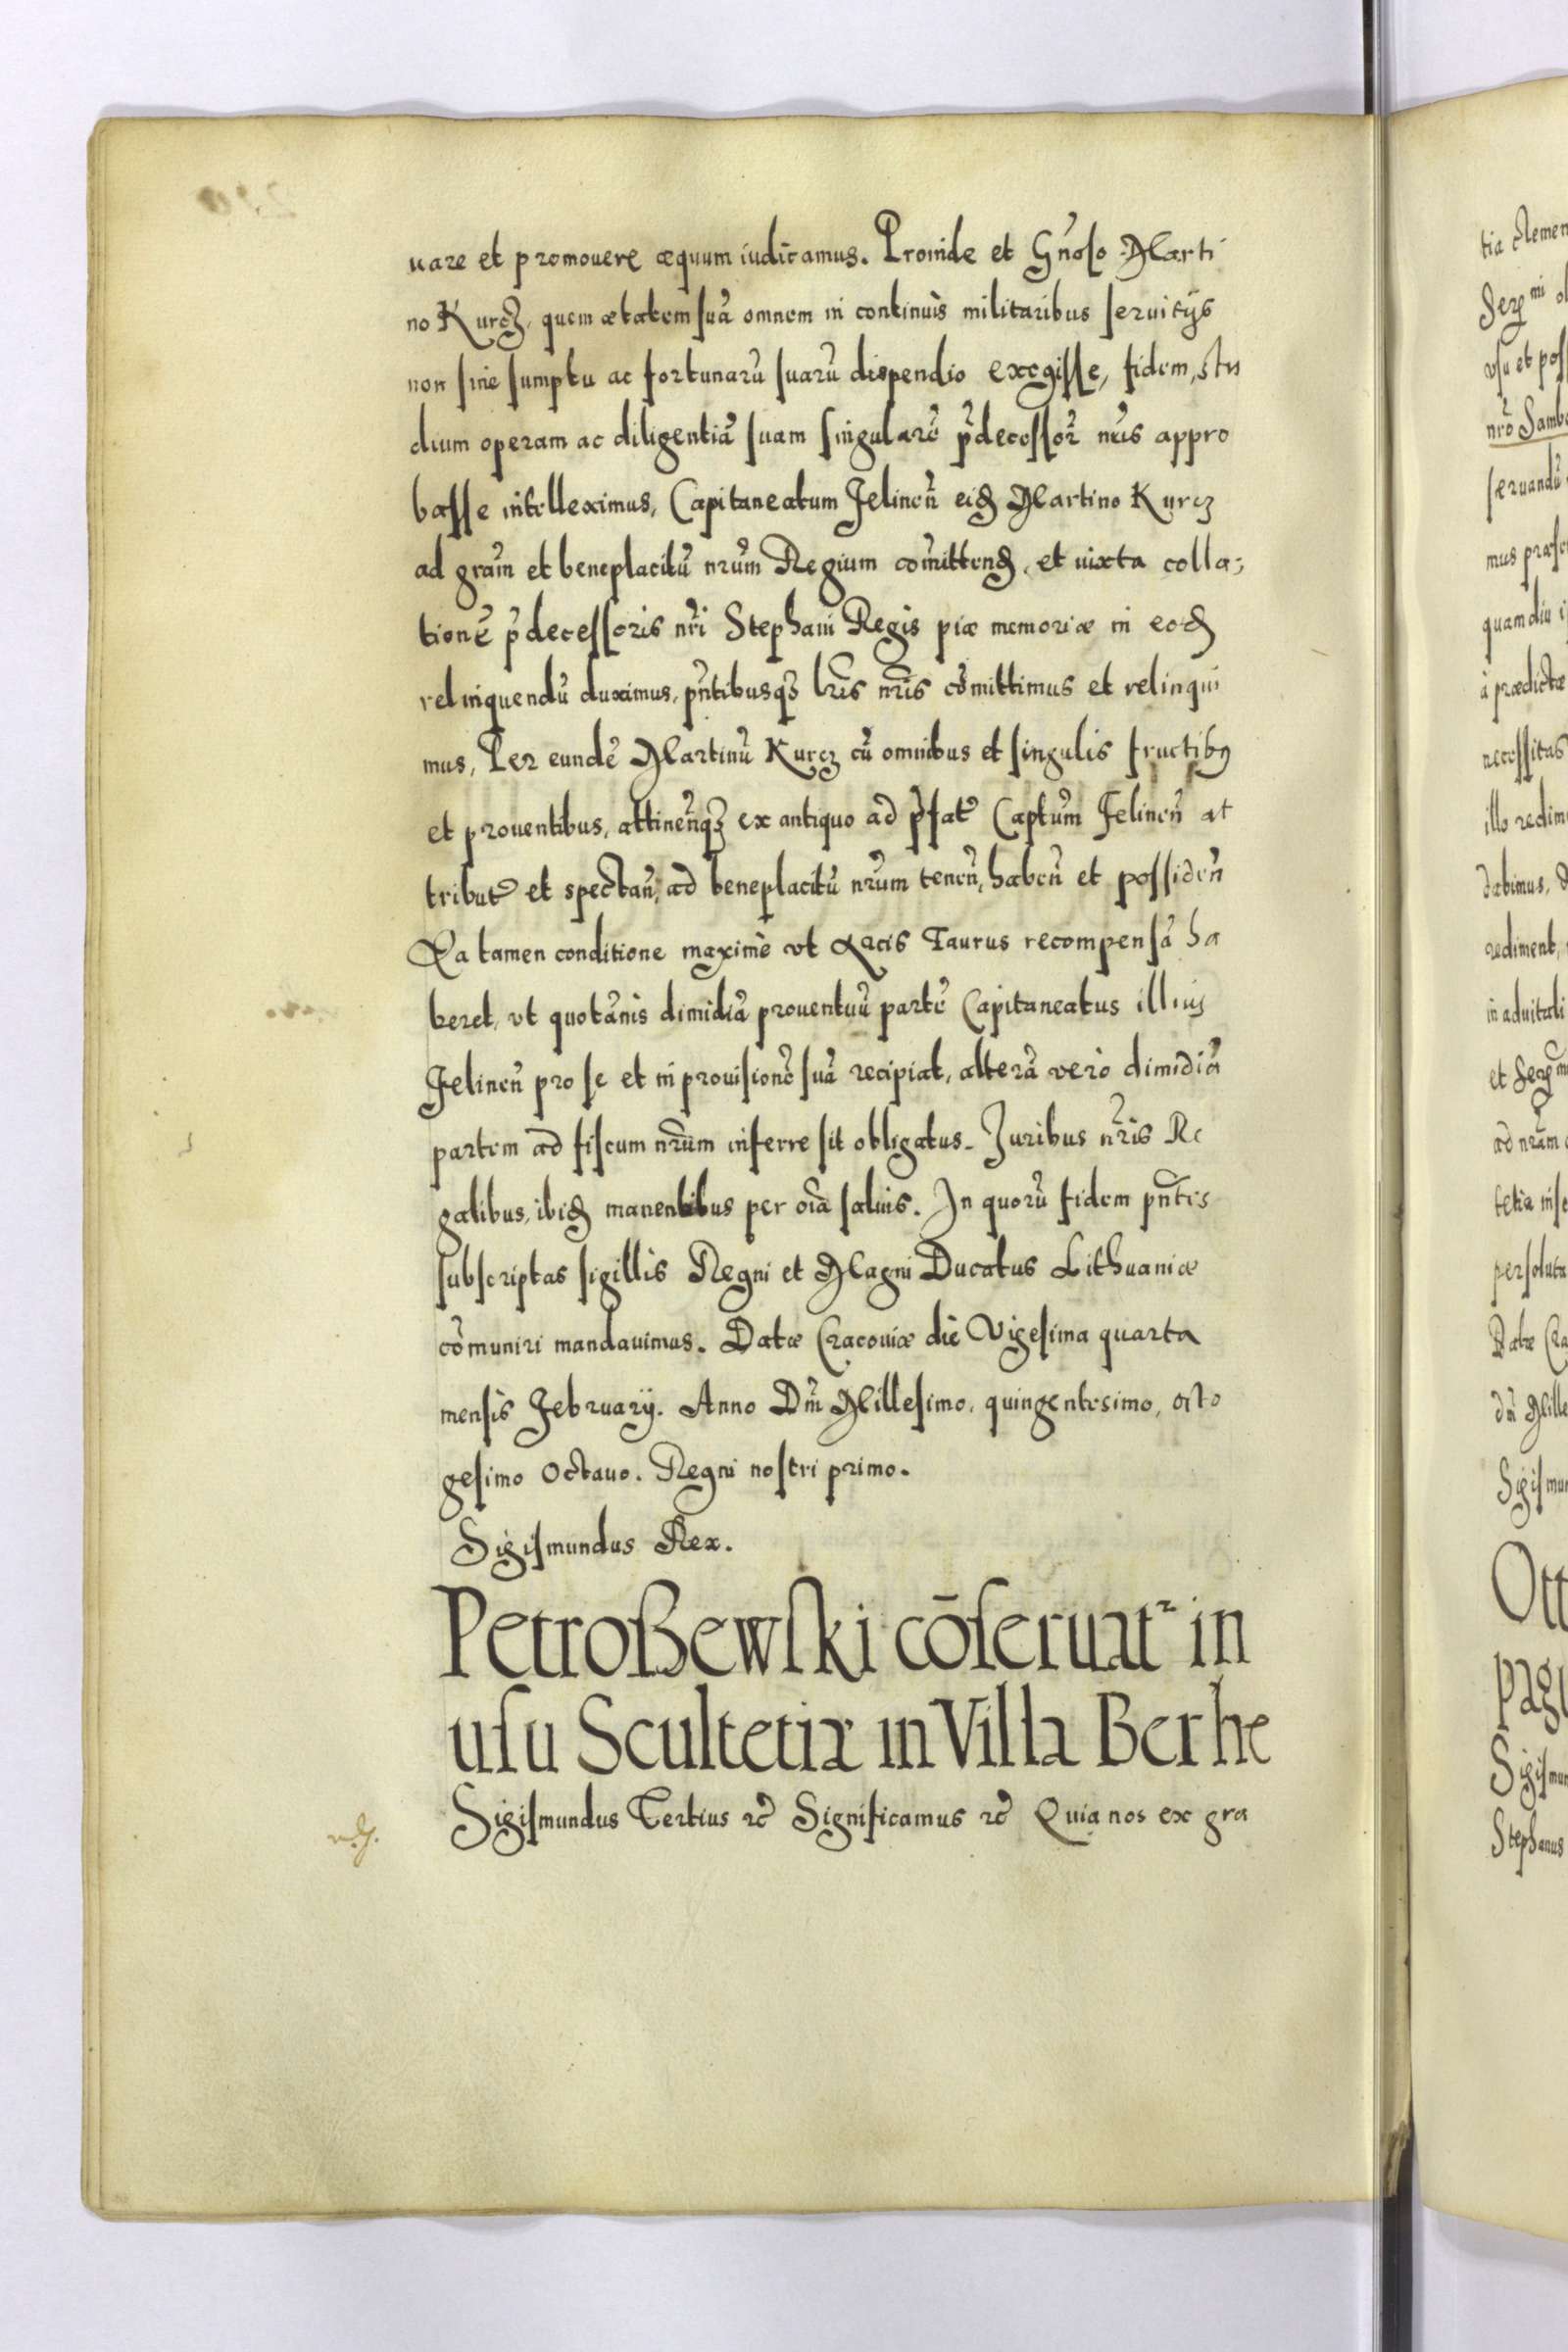 uare et promouere æquum iudicamus. Proinde et Gñoso Marti
no Kurcz, quem ætatem suã omnem in continuis militaribus seruitijs
non sine sumptu ac fortunarũ suarũ dispendio exegisse, fidem, stu
dium operam ac diligentiã suam singularẽ p̃decessor̃ nr̃is appro
basse intelleximus, Capitaneatum Felinen̄ eid̃ Martino Kurcz
ad grãm et beneplacitũ nrũm Regium com̃ittend̃, et iuxta colla;
tionẽ p̃decessoris nr̃i Stephani Regis piæ memoriæ in eod̃
relinquendũ duximus, pñtibusq₃ lr̃is nr̃is cõmittimus et relinqui
mus, Per eundẽ Martinũ Kurcz cũ omnibus et singulis fructibꝰ
et prouentibus, attineñq₃ ex antiquo ad p̃fat̃ Captũm Felinen̄ at
tribut̃ et spectañ, ad beneplacitũ nrũm teneñ, habeñ et possideñ
Ea tamen conditione maximè vt Arcis Taurus recompensã ha
beret, vt quotãnis dimidiã prouentuũ partẽ Capitaneatus illius
Felinen̄ pro se et in prouisionẽ suã recipiat, alterã verò dimidiã
partem ad fiscum nrũm inferre sit obligatus. Juribus nr̃is Re
galibus, ibid̃ manentibus per oĩa saluis. In quorũ fidem pñtes
subscriptas sigillis Regni et Magni Ducatus Lithuaniæ
cõmuniri mandauimus. Datæ Cracouiæ die Vigesima quarta
mensis February. Anno Dñi Millesimo, quingentesimo, octo
gesimo Octauo. Regni nostri primo.
Sigismundus Rex.
Petroßewski cōseruatr in
usu Scultetiæ in Villa Berhe
Sigismundus Tertius rc̃ Significamus rc̃ Quia nos ex gra
tia clemen
usu et pos
nrõ Sambo
seruandũ
mus præse
quamdiu i
à prædictæ
necessitas
illo redim
dabimus,
rediment,
in aduitali
ad nrãm
persoluta
Datæ Cra
dñi Mille
Sigismun
Ott
pagi
Sigismun
Stephanus